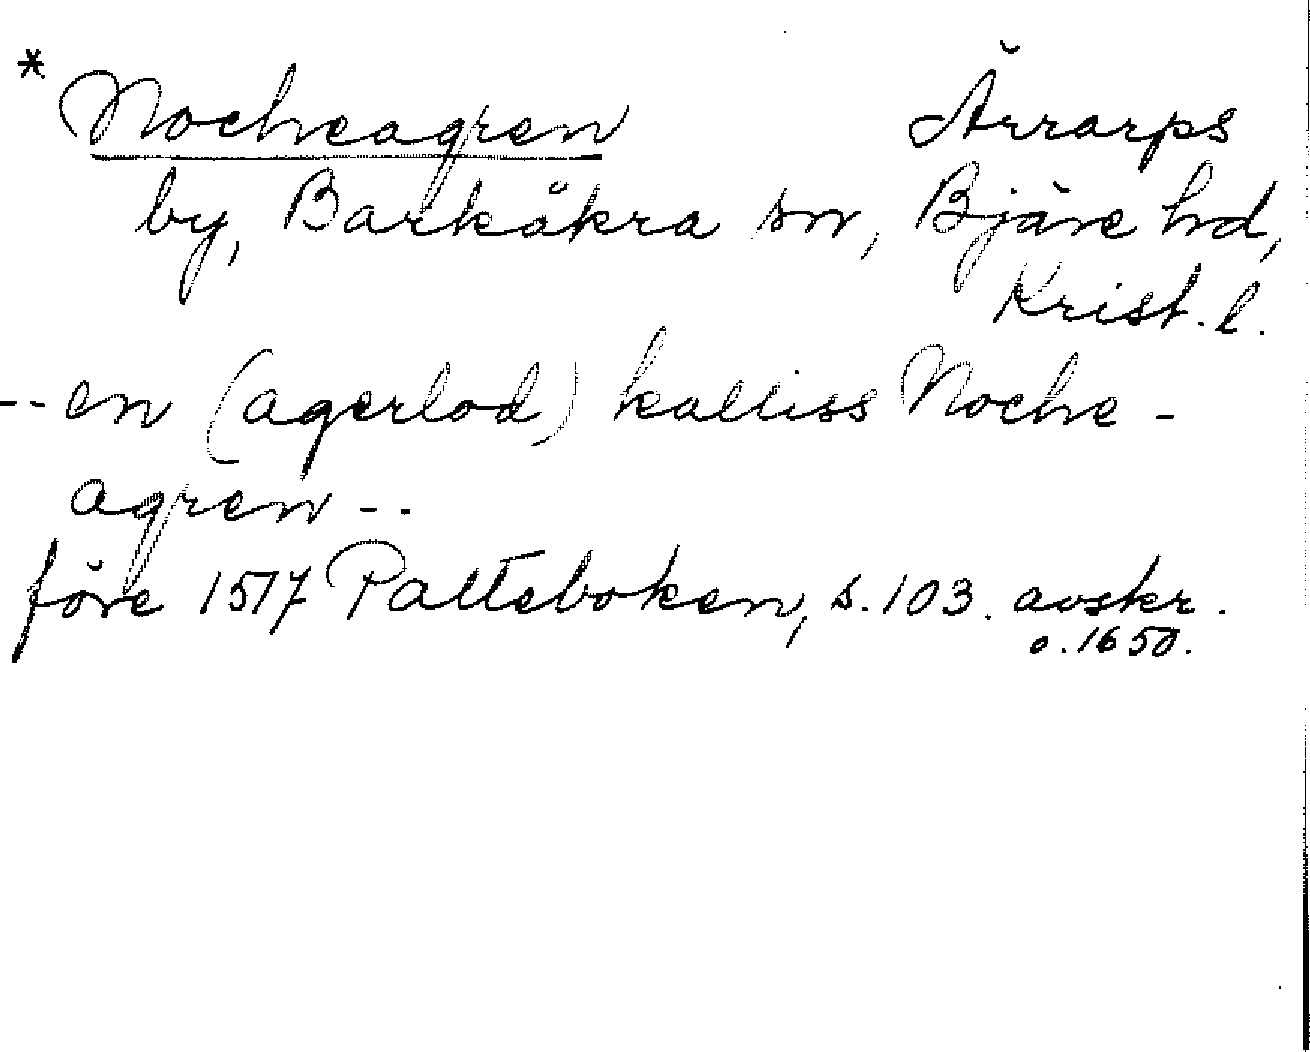 * Nocheagren Ärrarps
by, Barkåkra sn, Bjäre hd,
Krist. l.
-- en (agerlod) kalliss Noche-
agren --
före 1517 Palteboken, s. 103. avskr.
o. 1650.